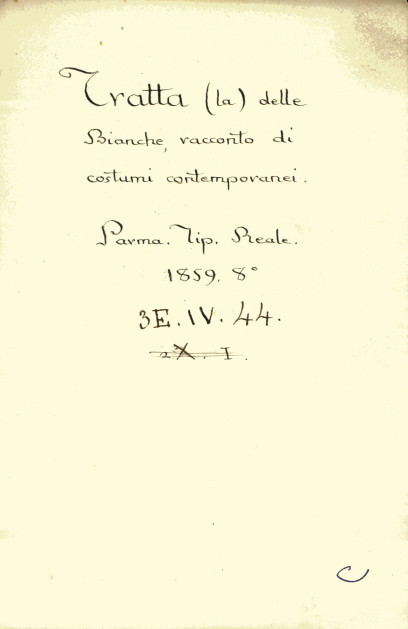 Tratta (la) delle
Bianche, racconto di
costumi contemporanei.
Parma. Tip. Reale.
1859. 8°
3E. IV. 44.
2X. I.
C